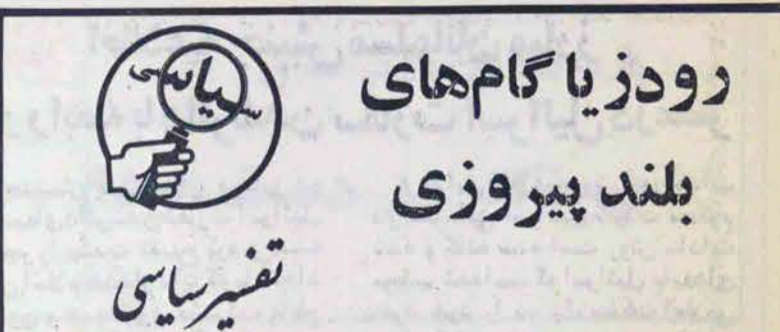 رودزیا گام‌های
بلند پیروزی
سیاسی
تفسیر سیاسی